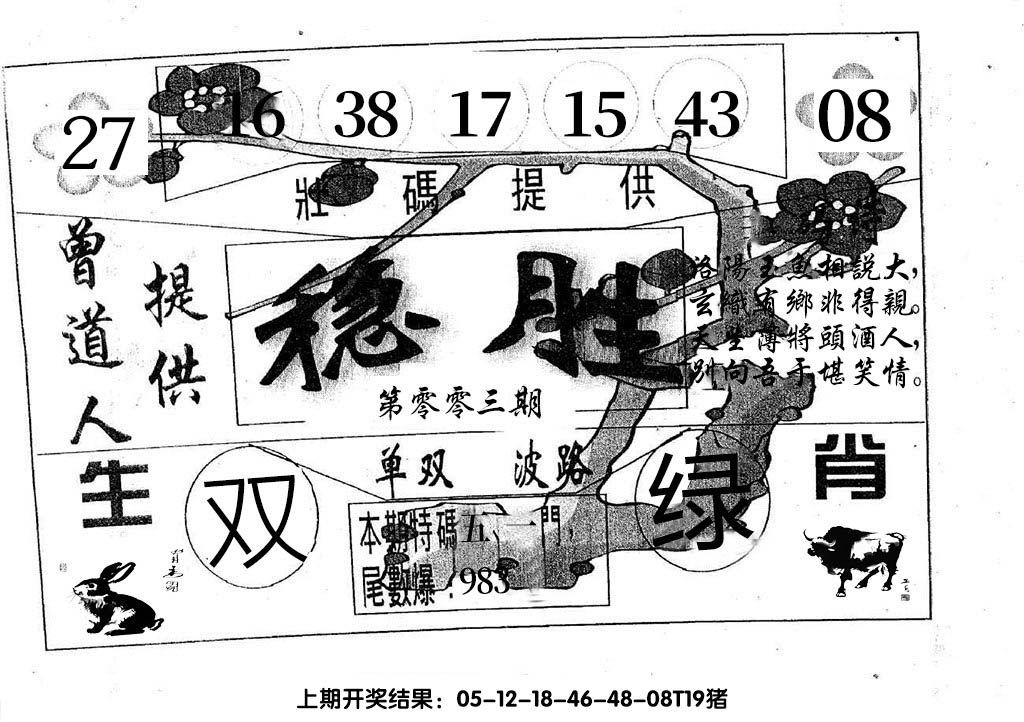 27 16 38 17 15 43 08
壯碼提供
特
曾道人
提供
稳胜
第零零三期
洛陽玉魚相説大，
玄織有鄉非得親。
天坐薄將頭酒人，
别向吾手堪笑情。
单双 波路
生肖
双
绿
本期特碼五、一門，
尾數爆：983
上期开奖结果：05-12-18-46-48-08T19猪